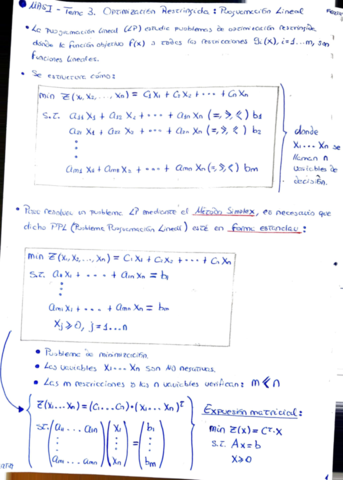 Tema 3. Optimización Restringida: Programación Lineal
• La Programación Lineal (LP) estudia problemas de optimización restringida,
donde la función objetivo f(x) y todas las restricciones gᵢ(x), i=1...m, son
funciones lineales.
• Se estructura como:
min Z(x₁, x₂, ..., xₙ) = C₁X₁ + C₂X₂ + ... + CₙXₙ
s.t. a₁₁X₁ + a₁₂X₂ + ... + a₁ₙXₙ (=, ≥, ≤) b₁
a₂₁X₁ + a₂₂X₂ + ... + a₂ₙXₙ (=, ≥, ≤) b₂
⋮
aₘ₁X₁ + aₘ₂X₂ + ... + aₘₙXₙ (=, ≥, ≤) bₘ
donde
X₁...Xₙ se
llaman n
variables de
decisión.
• Para resolver un problema LP mediante el Método Simplex, es necesario que
dicho PPL (Problema Programación Lineal) esté en forma estándar:
min Z(x₁, x₂, ..., xₙ) = C₁X₁ + ... + CₙXₙ
s.t. a₁₁X₁ + ... + a₁ₙXₙ = b₁
⋮
aₘ₁X₁ + ... + aₘₙXₙ = bₘ
Xⱼ ≥ 0, j = 1...n
• Problema de minimización.
• Las variables X₁...Xₙ son NO negativas.
• Las m restricciones y las n variables verifican: m ≪ n
Z(x₁...xₙ) = (C₁...Cₙ)·(X₁...Xₙ)ᵀ
s.t. (a₁₁ ... a₁ₙ ⋮ aₘ₁ ... aₘₙ) (X₁ ⋮ Xₙ) = (b₁ ⋮ bₘ)
Expresión matricial:
min Z(x) = Cᵀ·X
s.t. Ax = b
X ≥ 0